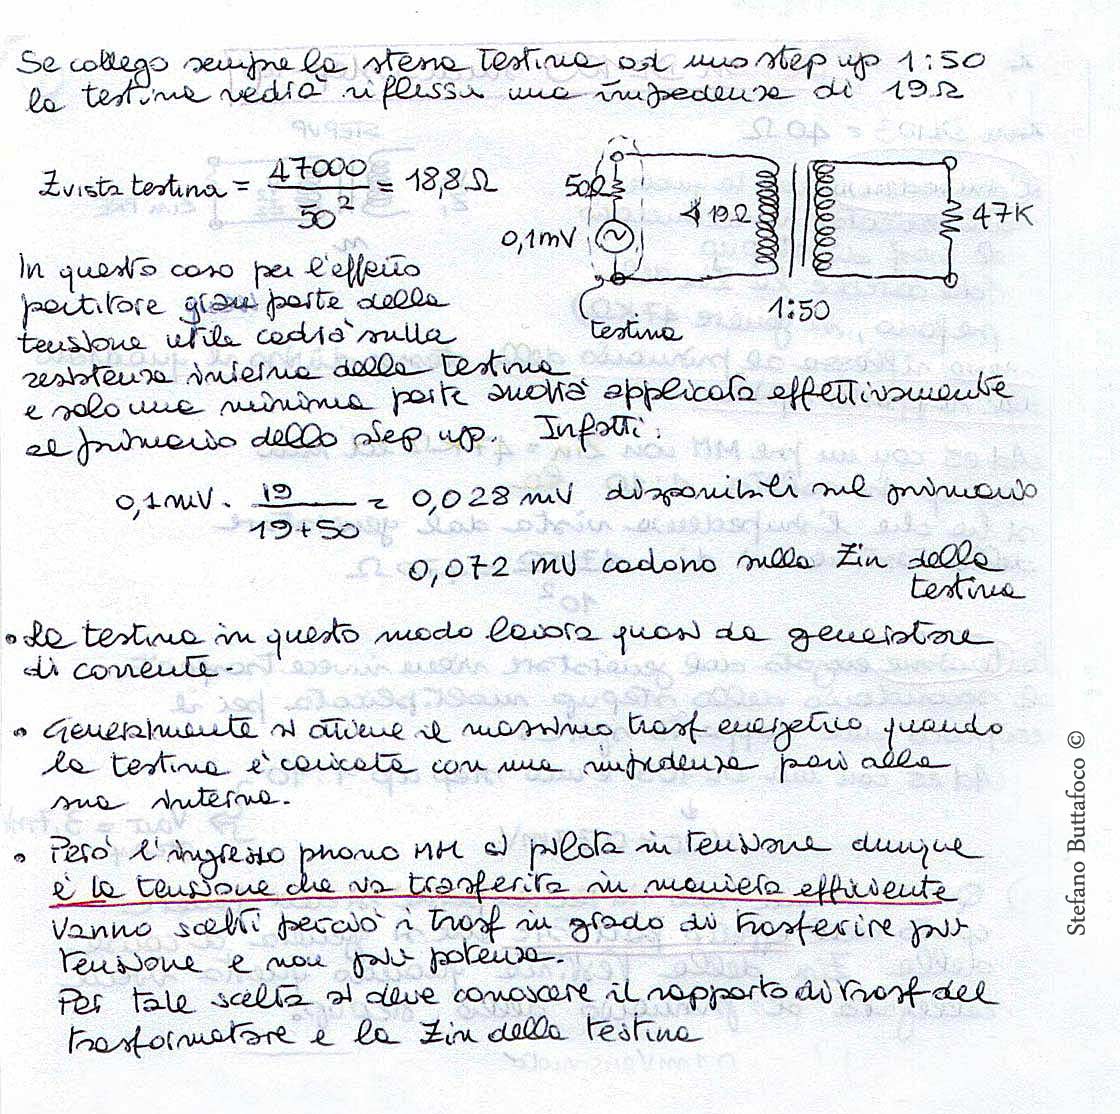 Se collego sempre la stessa testina ad uno step up 1:50
la testina vedrà riflessa una impedenza di 19Ω
Zvista testina = 47000 / 50² = 18,8Ω
50Ω
19Ω
0,1mV
47K
1:50
testina
In questo caso per l'effetto
partitore gran parte della
tensione utile cadrà sulla
resistenza interna della testina
e solo una minima parte andrà applicata effettivamente
al primario dello step up. Infatti:
0,1mV · 19 / 19+50 = 0,028 mV disponibili sul primario
0,072 mV cadono sulla Zin della
testina
• La testina in questo modo lavora quasi da generatore
di corrente
• Generalmente si ottiene il massimo trasf energetico quando
la testina è caricata con una impedenza pari alla
sua interna.
• Però l'ingresso phono MM si pilota in tensione dunque
è la tensione che va trasferita in maniera efficiente
Vanno scelti perciò i trasf in grado di trasferire più
tensione e non più potenza.
Per tale scelta si deve conoscere il rapporto di trasf del
trasformatore e la Zin della testina
Stefano Buttafoco ©